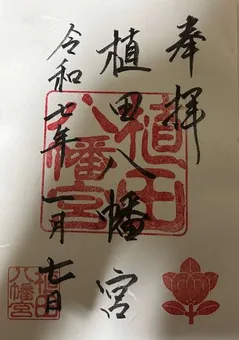 奉拝
植田八幡宮
令和七年一月七日
植田八幡宮
植田八幡宮